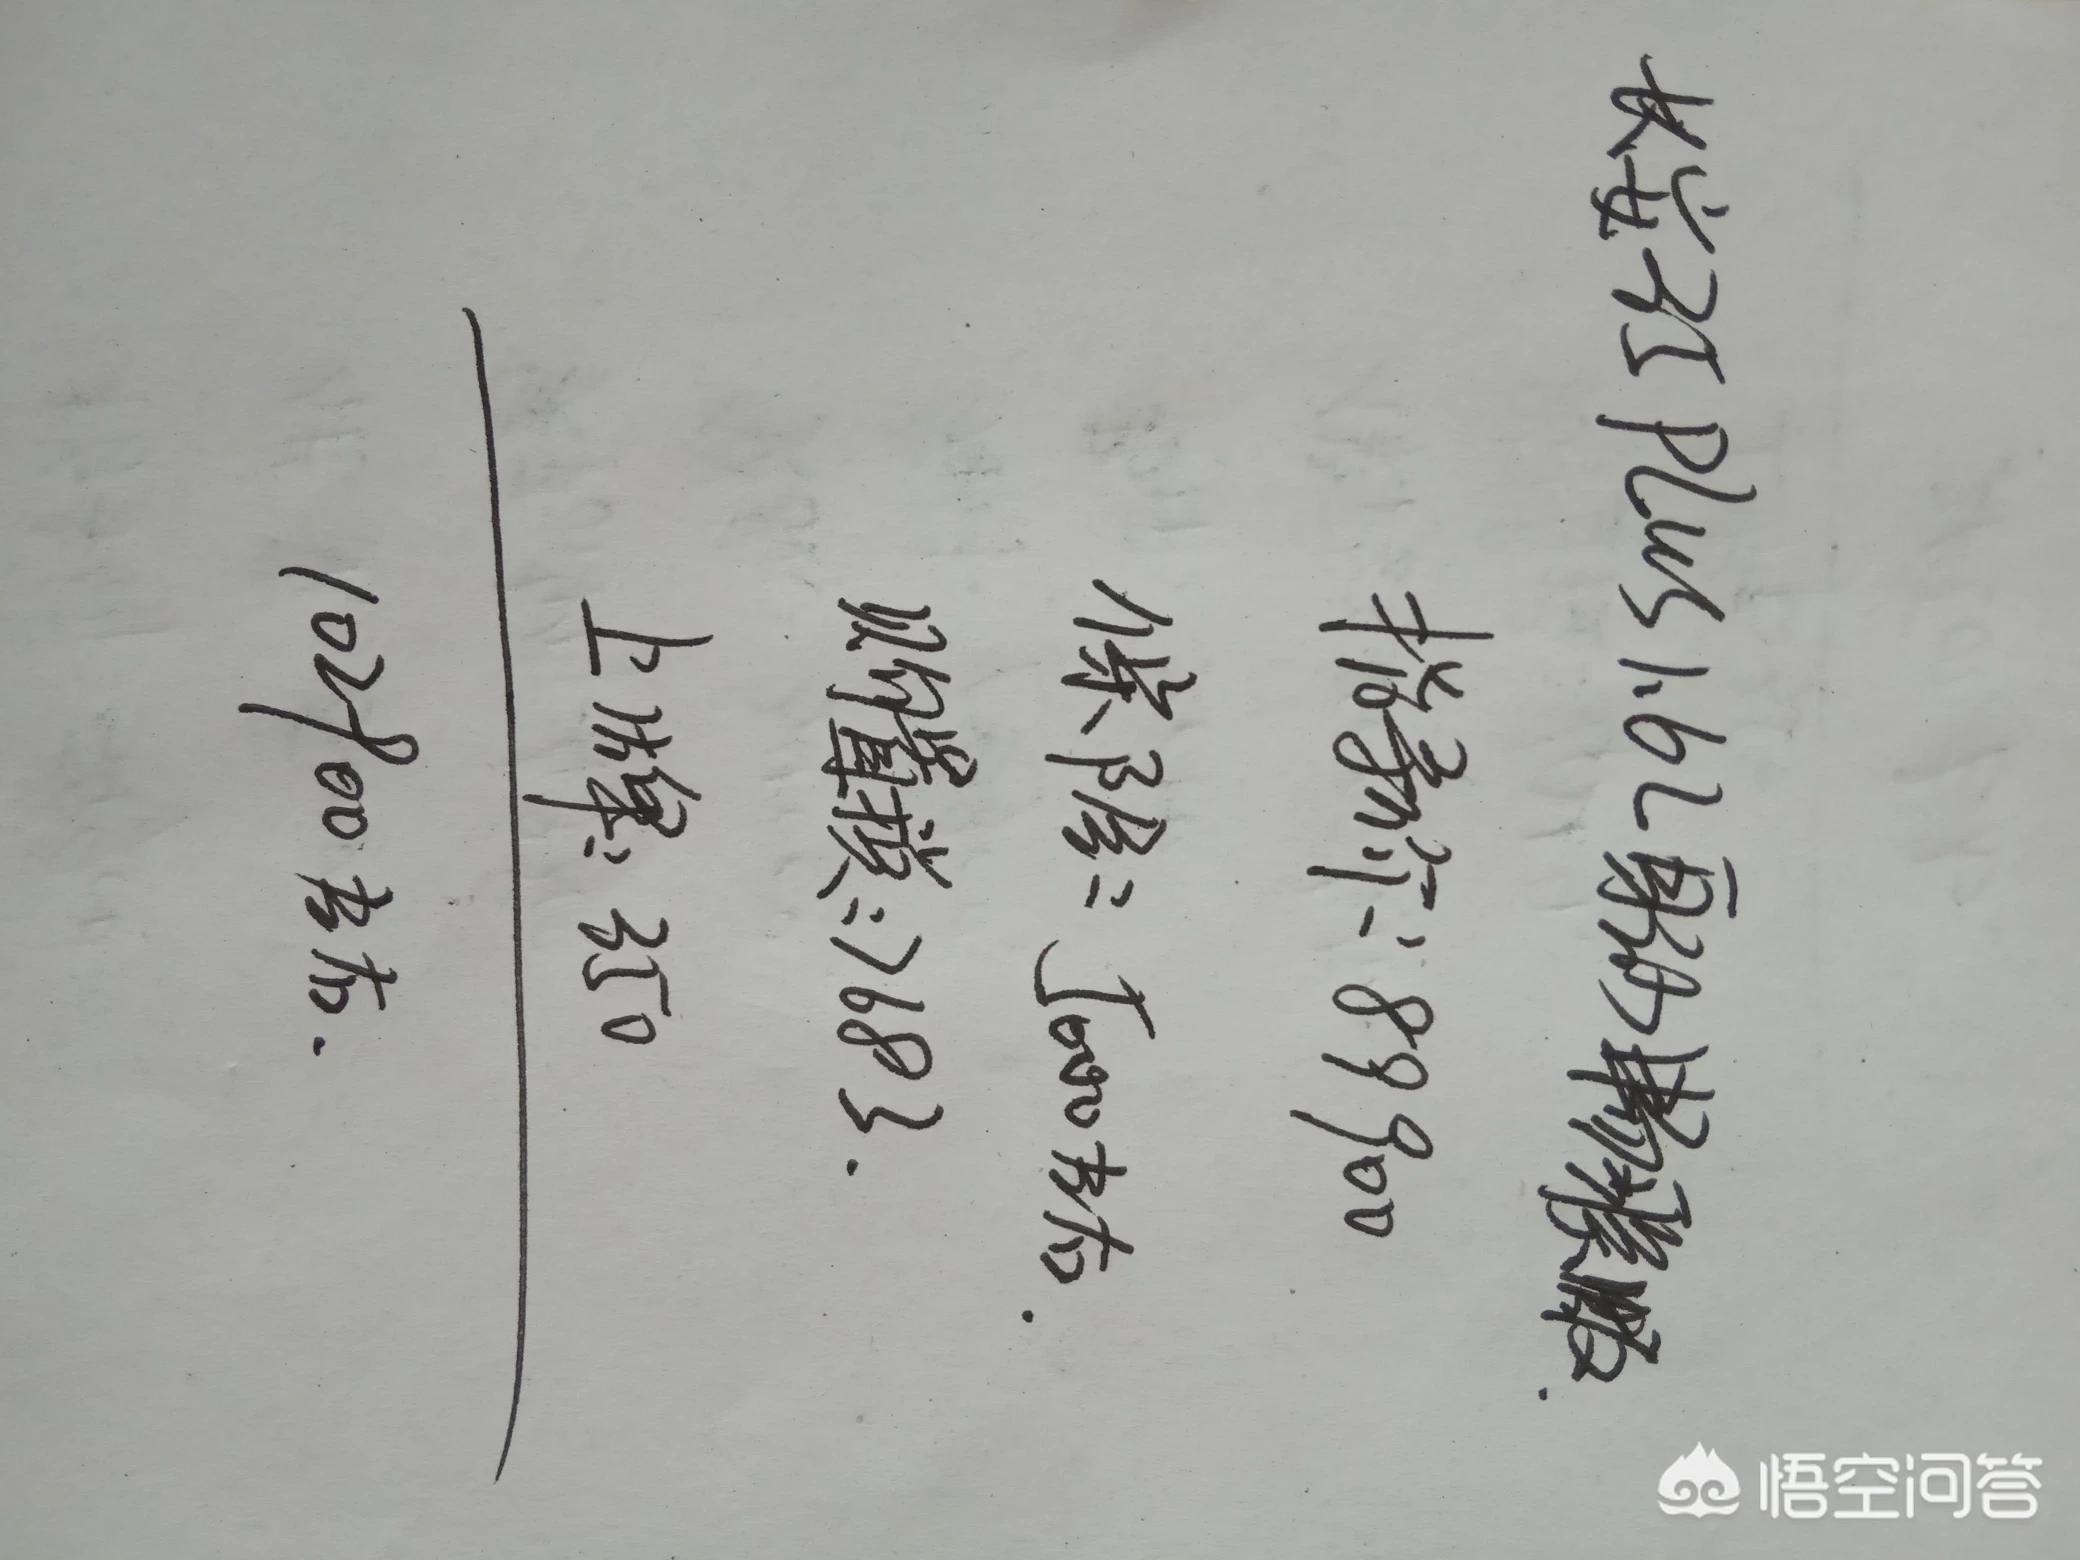 长安 Plus 1.6L
指导价:89900
保险:5000左右.
购置税:7683.
上牌:350
102900左右.
悟空问答